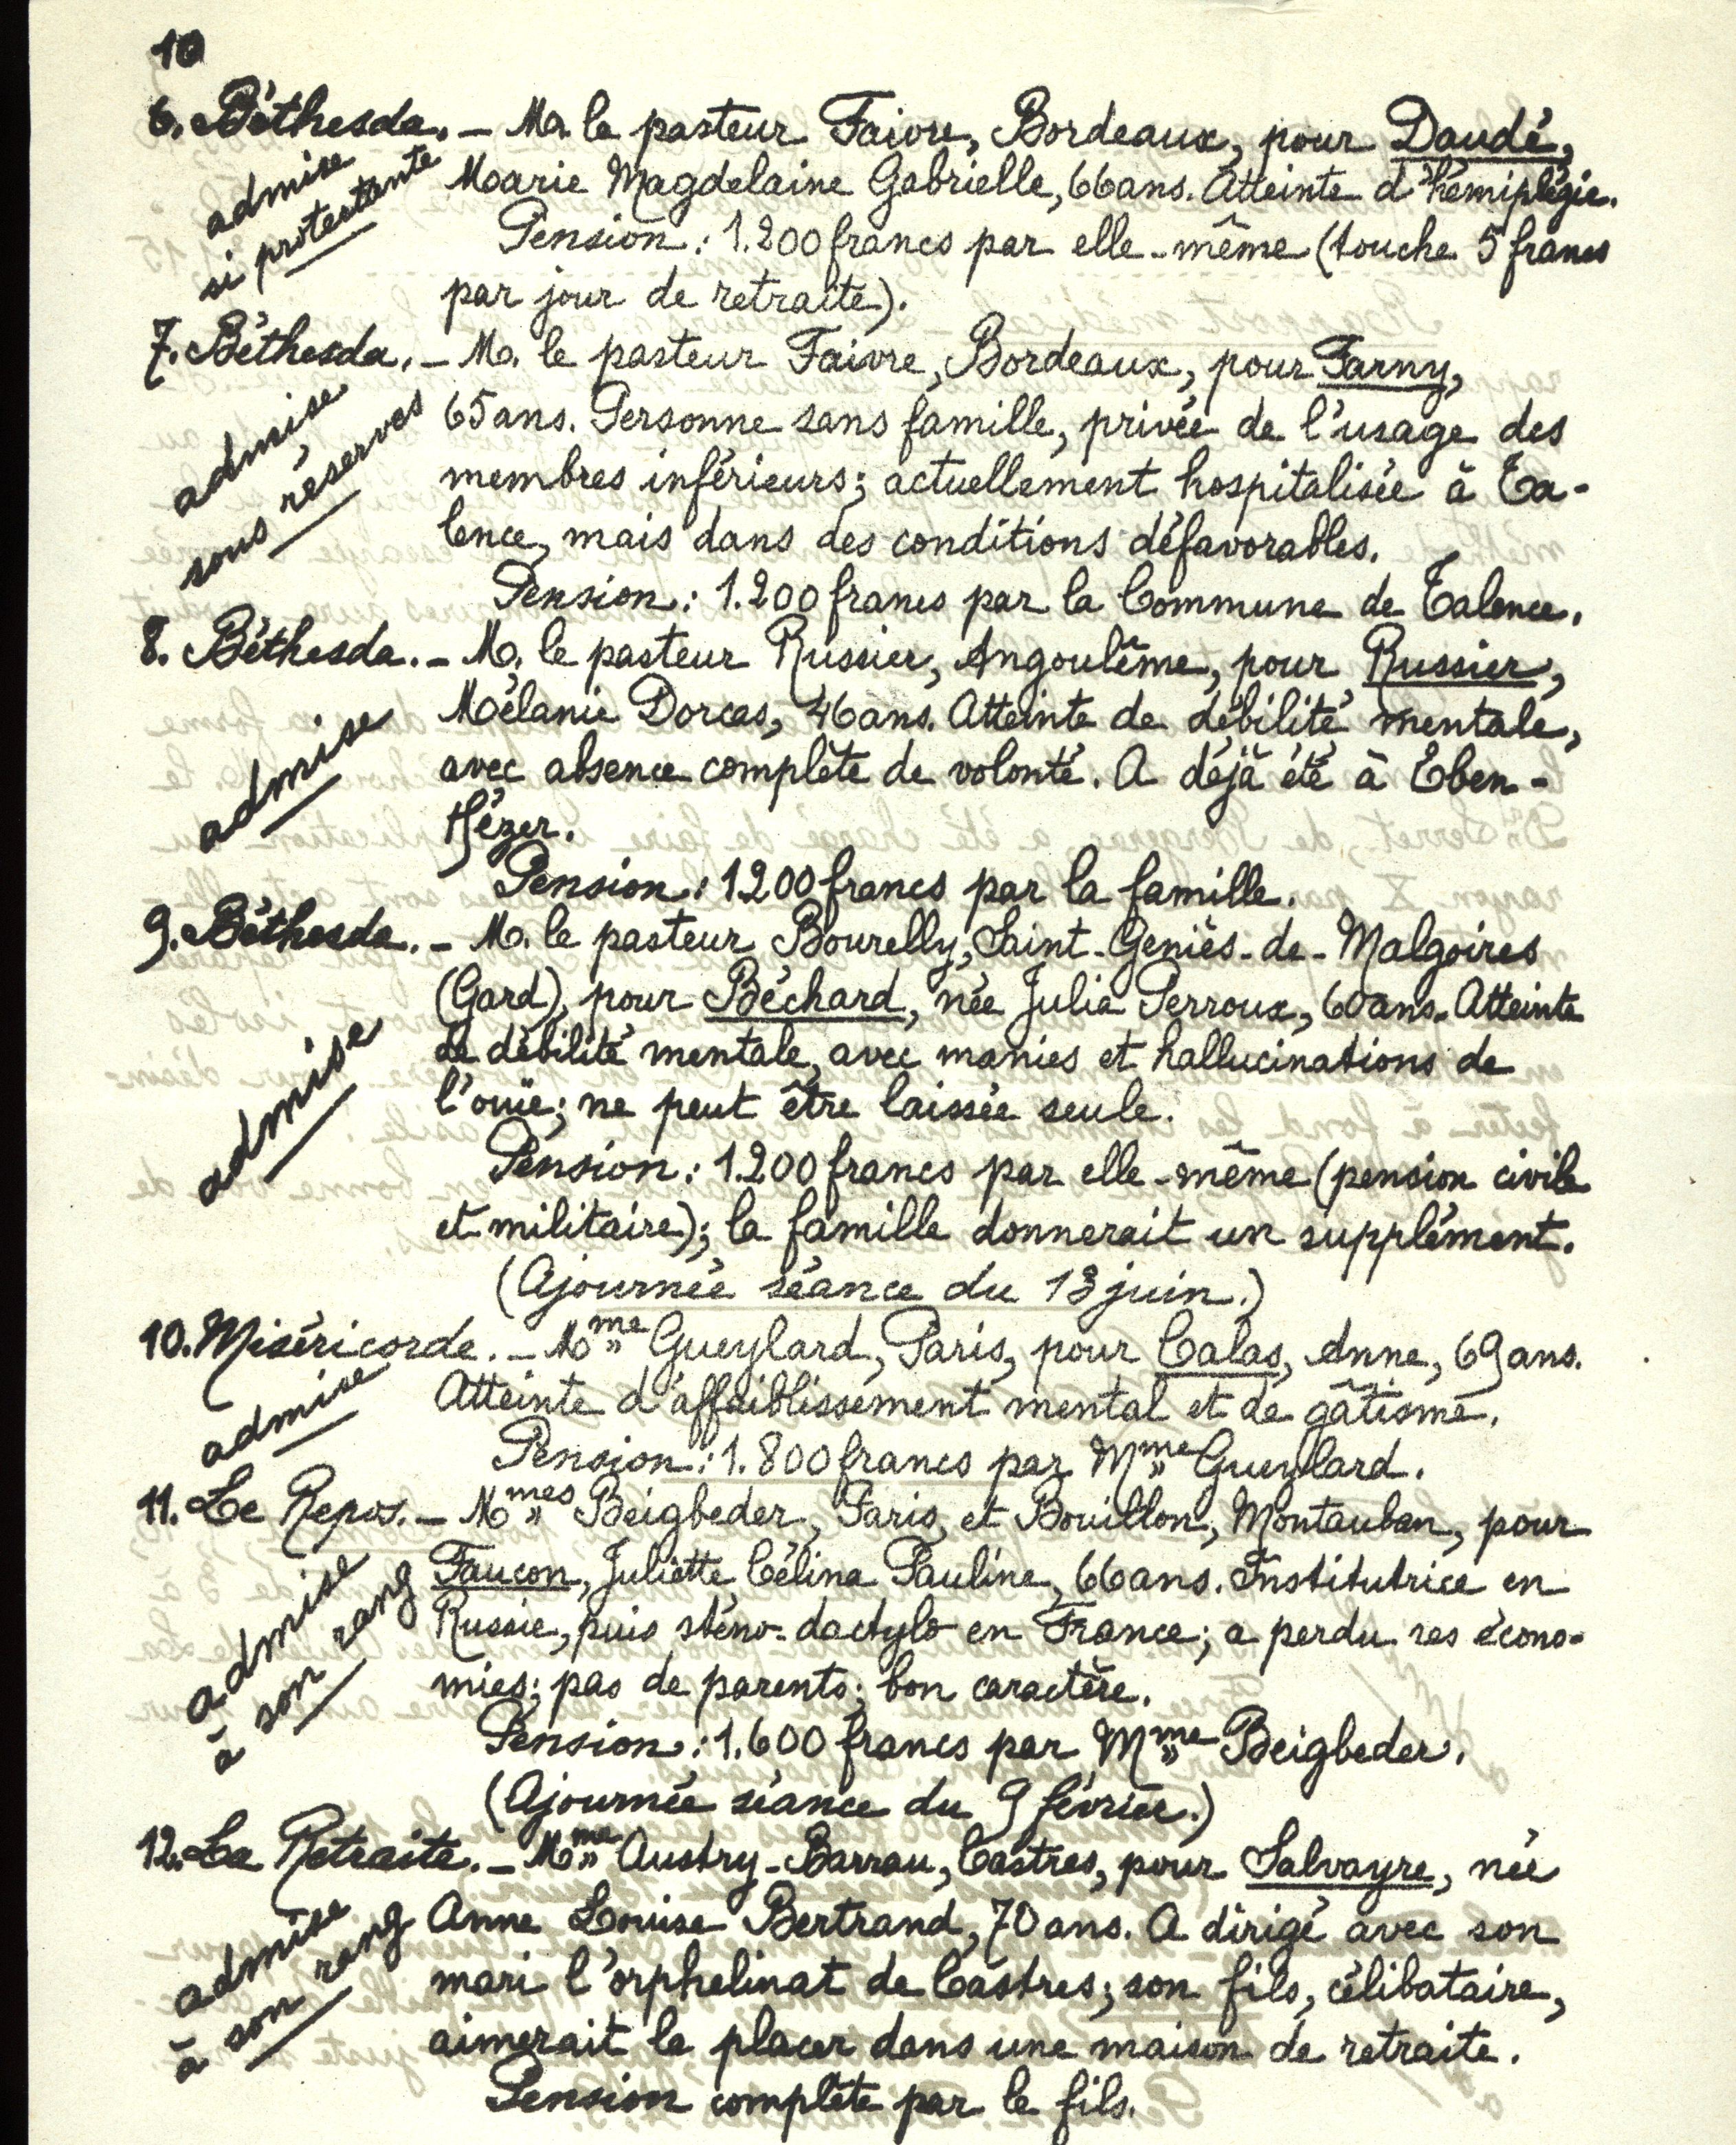 10
6. Béthesda. – M. le pasteur Faivre, Bordeaux, pour Daudé,
admise
si protestante
Marie Magdelaine Gabrielle, 66 ans. Atteinte d'hémiplégie.
Pension : 1.200 francs par elle-même (touche 5 francs
par jour de retraite).
7. Béthesda. – M. le pasteur Faivre, Bordeaux, pour Farny,
admise
sous réserves
65 ans. Personne sans famille, privée de l'usage des
membres inférieurs ; actuellement hospitalisée à Ta-
lence, mais dans des conditions défavorables.
Pension : 1.200 francs par la Commune de Talence.
8. Béthesda. – M. le pasteur Russier, Angoulême, pour Russier,
admise
Mélanie Dorcas, 46 ans. Atteinte de débilité mentale,
avec absence complète de volonté. A déjà été à Eben-
Hézer.
Pension : 1200 francs par la famille.
9. Béthesda. – M. le pasteur Bourelly, Saint-Geniès-de-Malgoires
admise
(Gard), pour Béchard, née Julia Perroux, 60 ans. Atteinte
de débilité mentale, avec manies et hallucinations de
l'ouïe ; ne peut être laissée seule.
Pension : 1.200 francs par elle-même (pension civile
et militaire) ; la famille donnerait un supplément.
(Ajournée séance du 13 juin.)
10. Miséricorde. – Mme Gueylard, Paris, pour Calas, Anne, 69 ans.
admise
Atteinte d'affaiblissement mental et de gâtisme.
Pension : 1.800 francs par Mme Gueylard.
11. Le Repos. – Mmes Beigbeder, Paris, et Bouillon, Montauban, pour
admise
à son rang
Faucon, Juliette Célina Pauline, 66 ans. Institutrice en
Russie, puis sténo-dactylo en France ; a perdu ses écono-
mies ; pas de parents ; bon caractère.
Pension : 1.600 francs par Mme Beigbeder.
(Ajournée séance du 9 février.)
12. La Retraite. – Mme Austry-Barrau, Castres, pour Salvayre, née
admise
à son rang
Anne Louise Bertrand, 70 ans. A dirigé avec son
mari l'orphelinat de Castres ; son fils, célibataire,
aimerait la placer dans une maison de retraite.
Pension complète par le fils.